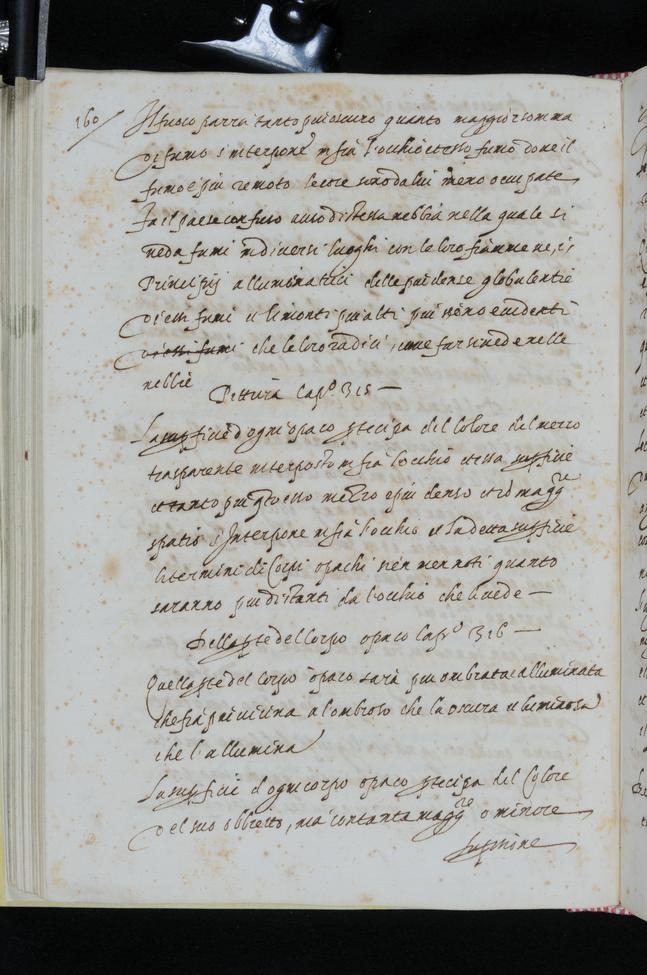 160/ Il fuoco parra tanto piu oscuro quanto maggior somma
di fumo s'interpone in fra l'ochio et esso fumo doue il
fumo è piu remoto le cose sono da lui meno ocupate
Fa il paese confuso a uso di stessa nebbia nella quale si
ueda fumi in diuersi luoghi con le loro fiamme ne, i
Principij alluminatrici delle piu dense globulentie
d'essi fumi et li monti piu alti piu sieno euidenti
d'essi fumi che le loro radici, come far si uede nelle
nebbie
Pittura Cap.º 315 —
La supficie d'ogni opaco ptecipa del Colore del mezzo
trasparente interposto in fra l'ochio et essa supficie
et tanto piu q.to esso mezzo è piu denso et cō magg.re
spatio s'Interpone in fra l'ochio et la detta supficie
li termini di Corpi opachi sien men noti quanto
saranno piu distanti da l'ochio che li uede —
Della pte del Corpo opaco Cap.º 316 —
Quella pte del Corpo opaco sarà piu ombrata e alluminata
che fia piu uicina a l'ombroso che la oscura et luminosa
che l'allumina
La supficie d'ogni corpo opaco ptecipa del Colore
del suo obbietto, ma con tanta magg.re o minore